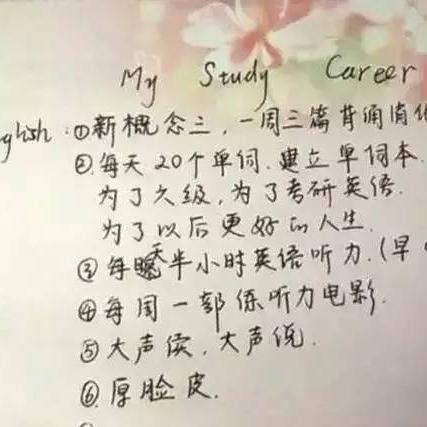 My Study Career
glish:①新概念三,一周三篇背诵
②每天20个单词.建立单词本.
为了六级,为了考研英语.
为了以后更好的人生.
③每天半小时英语听力.(早
④每周一部练听力电影.
⑤大声读,大声说.
⑥厚脸皮.